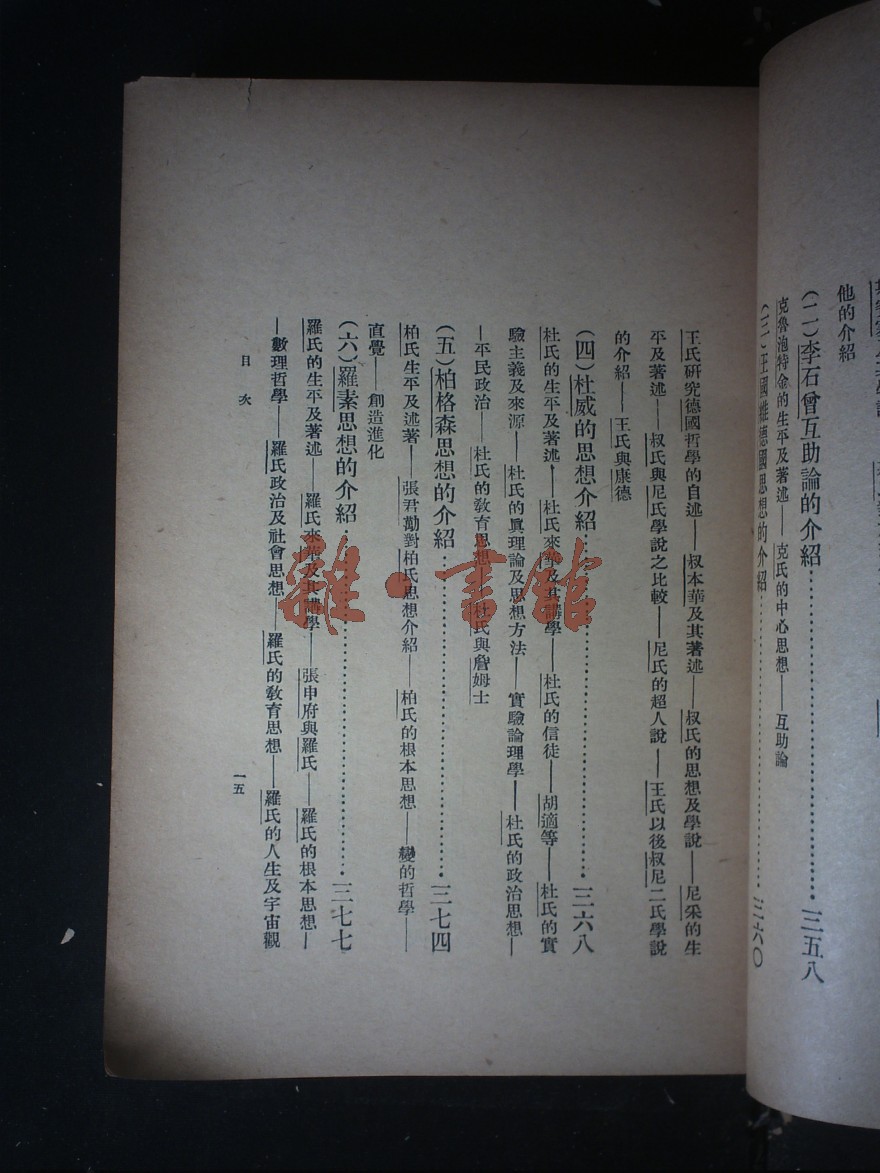 他的介紹
(二)李石曾互助論的介紹……………………三五八
克魯泡特金的生平及著述——克氏的中心思想——互助論
(三)王國維德國思想的介紹……………………三六〇
王氏研究德國哲學的自述——叔本華及其著述——叔氏的思想及學說——尼采的生
平及著述——叔氏與尼氏學說之比較——尼氏的超人說——王氏以後叔尼二氏學說
的介紹——王氏與康德
(四)杜威的思想介紹……………………三六八
杜氏的生平及著述——杜氏來華及其講學——杜氏的信徒——胡適等——杜氏的實
驗主義及來源——杜氏的眞理論及思想方法——實驗論理學——杜氏的政治思想—
—平民政治——杜氏的敎育思想——杜氏與詹姆士
(五)柏格森思想的介紹……………………三七四
柏氏生平及述著——張君勱對柏氏思想介紹——柏氏的根本思想——變的哲學——
直覺——創造進化
(六)羅素思想的介紹……………………三七七
羅氏的生平及著述——羅氏來華及其講學——張申府與羅氏——羅氏的根本思想—
—數理哲學——羅氏政治及社會思想——羅氏的敎育思想——羅氏的人生及宇宙觀
目次
一五
雜·書館